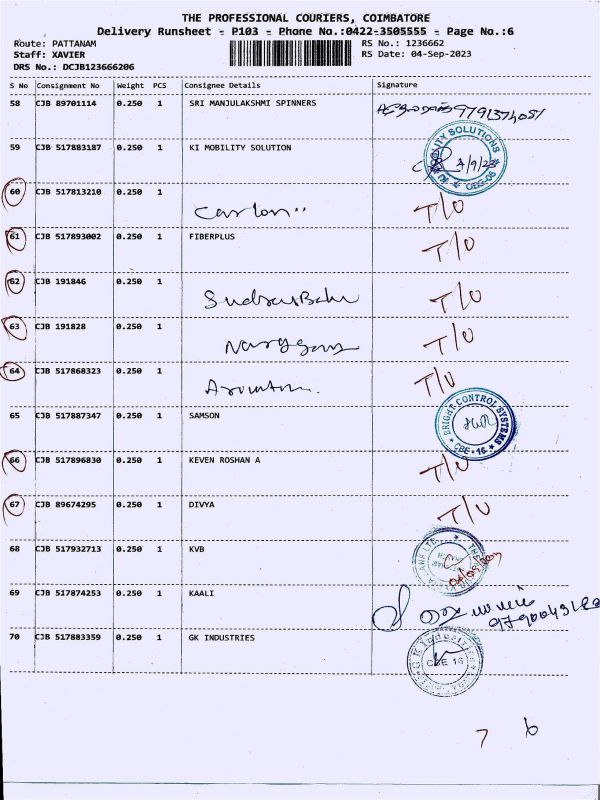 THE PROFESSIONAL COURIERS, COIMBATORE
Delivery Runsheet - P103 - Phone No.:0422-3505555 - Page No.:6
Route: PATTANAM RS No.: 1236662
Staff: XAVIER RS Date: 04-Sep-2023
DRS No.: DCJB123666206
S No Consignment No Weight PCS Consignee Details Signature
58 CJB 89701114 0.250 1 SRI MANJULAKSHMI SPINNERS
59 CJB 517883187 0.250 1 KI MOBILITY SOLUTION 4/9/23
60 CJB 517813210 0.250 1 T/O
61 CJB 517893002 0.250 1 FIBERPLUS T/O
62 CJB 191846 0.250 1 T/O
63 CJB 191828 0.250 1 T/O
64 CJB 517868323 0.250 1 T/O
65 CJB 517887347 0.250 1 SAMSON BRIGHT CONTROL SYSTEMS CBE - 16
66 CJB 517896830 0.250 1 KEVEN ROSHAN A T/O
67 CJB 89674295 0.250 1 DIVYA T/O
68 CJB 517932713 0.250 1 KVB
69 CJB 517874253 0.250 1 KAALI
70 CJB 517883359 0.250 1 GK INDUSTRIES CBE 16
7 6